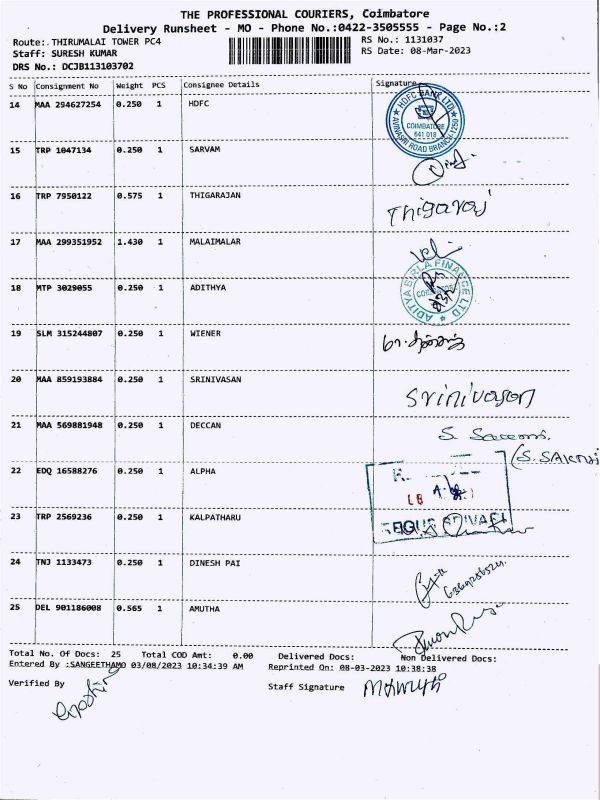 THE PROFESSIONAL COURIERS, Coimbatore
Delivery Runsheet - MO - Phone No.:0422-3505555 - Page No.:2
Route:.THIRUMALAI TOWER PC4 RS No.: 1131037
Staff: SURESH KUMAR RS Date: 08-Mar-2023
DRS No.: DCJB113103702
S No Consignment No Weight PCS Consignee Details Signature
14 MAA 294627254 0.250 1 HDFC
HDFC BANK LTD
COIMBATORE
641 018
AVINASHI ROAD BRANCH-1250
15 TRP 1047134 0.250 1 SARVAM
16 TRP 7950122 0.575 1 THIGARAJAN Thigaraj
17 MAA 299351952 1.430 1 MALAIMALAR
18 MTP 3029055 0.250 1 ADITHYA
ADITYA BIRLA FINANCE LTD
COIMBATORE
19 SLM 315244807 0.250 1 WIENER
20 MAA 859193884 0.250 1 SRINIVASAN Srinivasan
21 MAA 569881948 0.250 1 DECCAN
22 EDQ 16588276 0.250 1 ALPHA
23 TRP 2569236 0.250 1 KALPATHARU
24 TNJ 1133473 0.250 1 DINESH PAI
25 DEL 901186008 0.565 1 AMUTHA
Total No. Of Docs: 25 Total COD Amt: 0.00 Delivered Docs: Non Delivered Docs:
Entered By :SANGEETHAMO 03/08/2023 10:34:39 AM Reprinted On: 08-03-2023 10:38:38
Verified By Staff Signature